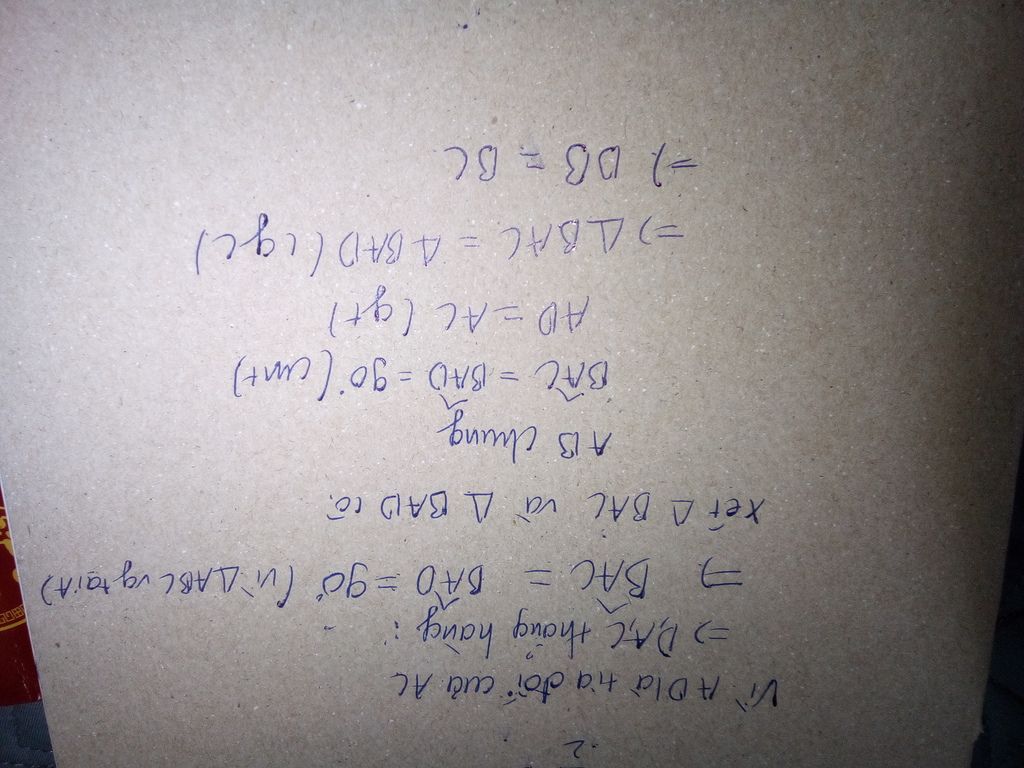 2
Vì AD là tia đối của AC
=> D,A,C thẳng hàng :
=> BAC = BAD = 90° (vì △ABC vg tại A)
xét △ BAC và △ BAD có
AB chung
BAC = BAD = 90° (cmt)
AD = AC (gt)
=> △BAC = △BAD (cgc)
=> DB = BC